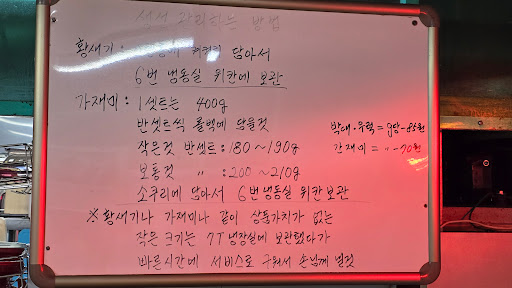 생선 관리하는 방법
황새기 : 켜켜이 담아서
6번 냉동실 위칸에 보관
가재미 : 1셋트는 400g
반셋트씩 롤백에 담을것
작은것 반셋트 : 180~190g
보통것 〃 : 200~210g
소쿠리에 담아서 6번 냉동실 위칸보관
※ 황새기나 가재미나 같이 상품가치가 없는
작은 크기는 77 냉장실에 보관했다가
빠른시간에 서비스로 구워서 손님께 낼것
박대·우럭 = g당-85원
간재미 = 〃-70원